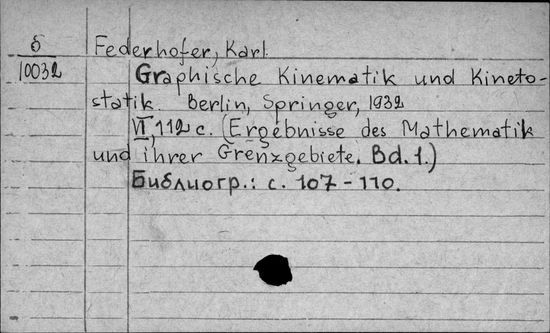 б
Federhofer, Karl.
10032
Graphische Kinematik und Kineto-
statik. Berlin, Springer, 1932
VI, 112 с. (Ergebnisse des Mathematik
und ihrer Grenzgebiete. Bd. 1.)
Библиогр.: с. 107-110.